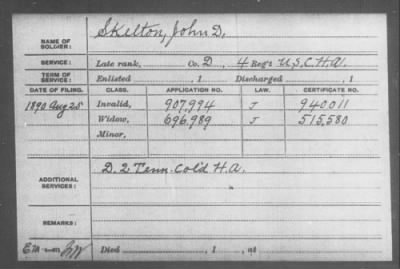 NAME OF SOLDIER: Skelton, John D.
SERVICE: Late rank, Co. D, 4 Reg't U.S.C.H.A.
TERM OF SERVICE: Enlisted , 1 Discharged , 1
DATE OF FILING. CLASS. APPLICATION NO. LAW. CERTIFICATE NO.
1890 Aug 25 Invalid, 907,994 J 940011
Widow, 696,989 J 515,580
Minor,
ADDITIONAL SERVICES: D. 2 Tenn. Col'd H.A.
REMARKS:
Died , 1 , at